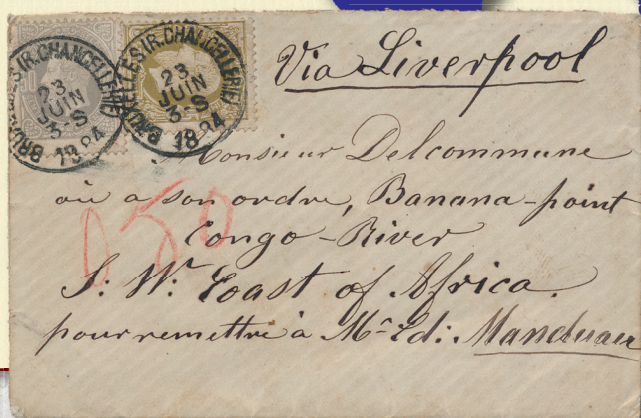 BRUXELLES (R. CHANCELLERIE)
23
JUIN
3-S
1884
BRUXELLES (R. CHANCELLERIE)
23
JUIN
3-S
1884
Via Liverpool
Monsieur Delcommune
où a son ordre, Banana-point
Congo-River
S. W. Coast of Africa.
pour remettre à Mr Ed: